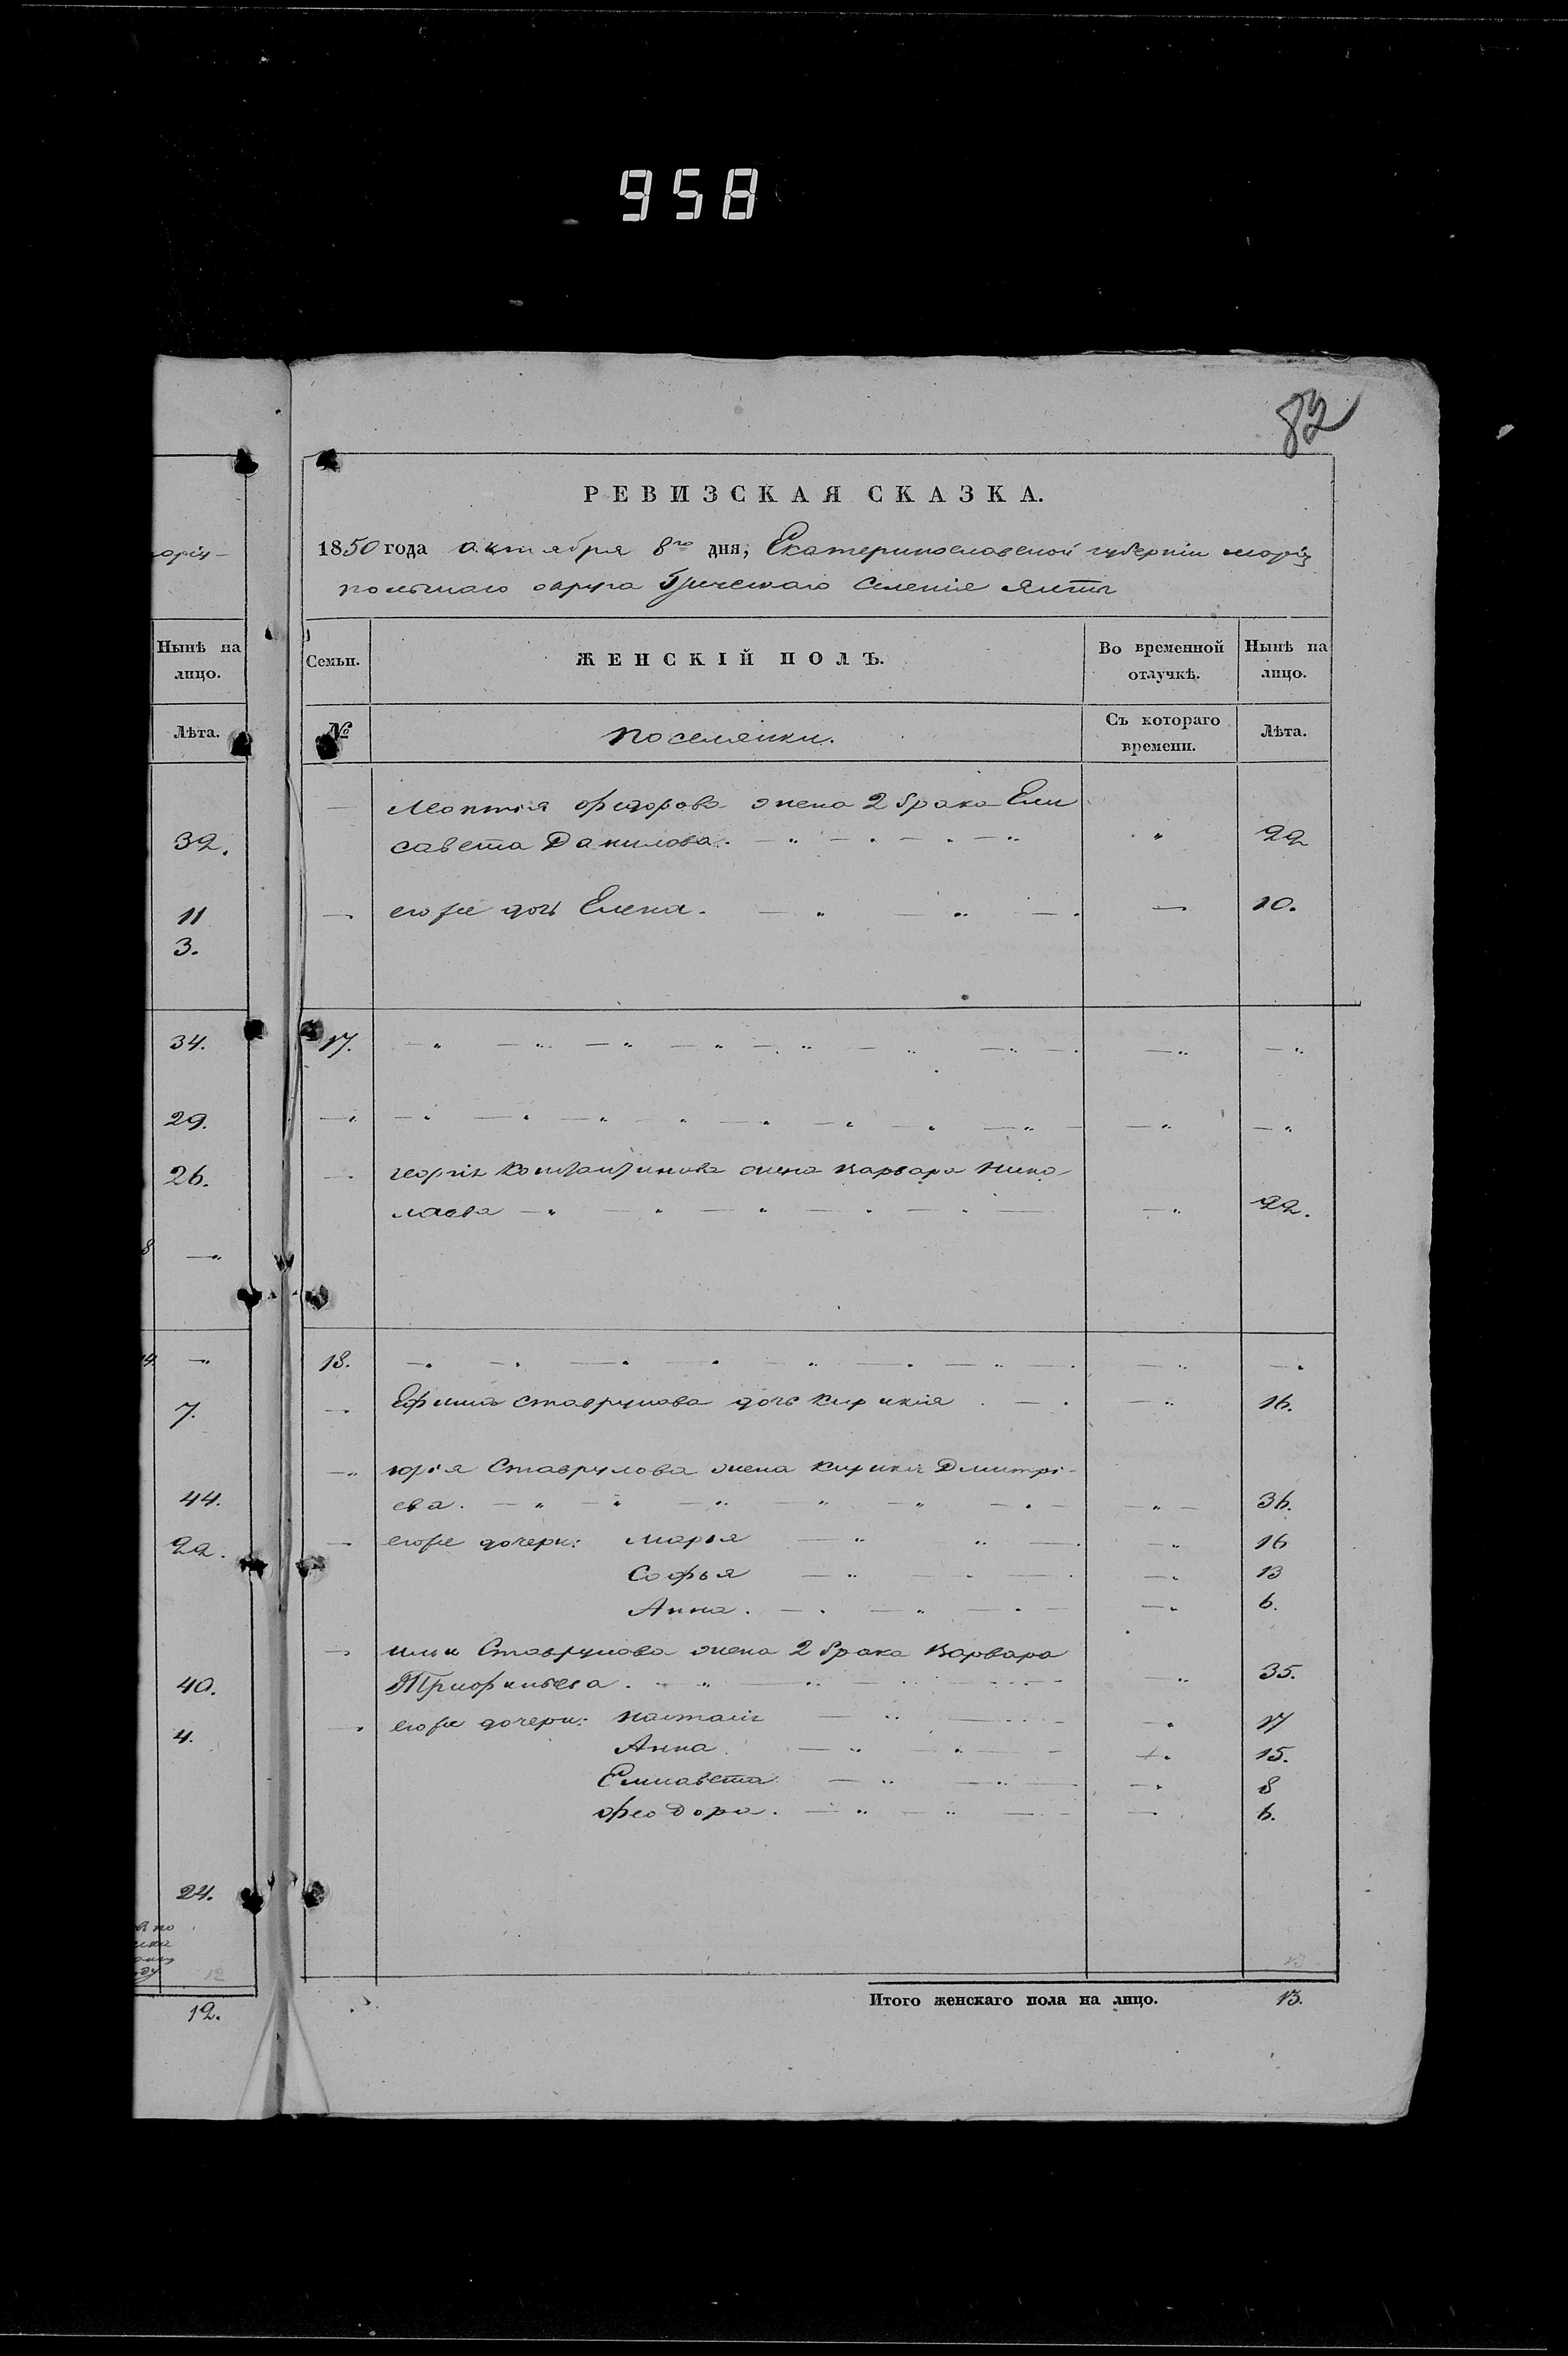 958
82
РЕВИЗСКАЯ СКАЗКА.
1850 года октября 8го дня, Екатеринославской губерніи маріу
польскаго округа Греческаго Селенія Ялты
Нынѣ на лицо.
Лѣта.
32.
11
3.
34.
29.
26.
7.
44.
22.
40.
4.
24.
12
12.
Семьи. ЖЕНСКІЙ ПОЛЪ. Во временной отлучкѣ. Нынѣ на лицо.
№ поселянки. Съ котораго времени. Лѣта.
Леонтія Федорова жена 2 брака Ели
савета Данилова. 22
его же дочь Елена. 10.
17.
георгія Константинова жена варвара Нико
лаева 22.
18.
Ефима Ставрулова дочь Кирикія 16.
юрія Ставрулова жена Кирикія Дмитрі-
ева. 36.
его же дочери: Марья 16
Софья 13
Анна. 6.
ильи Ставрулова жена 2 брака варвара
35.
его же дочери: 17
Анна 15.
Елисавета 8
Феодора. 6.
13
Итого женскаго пола на лицо. 13.